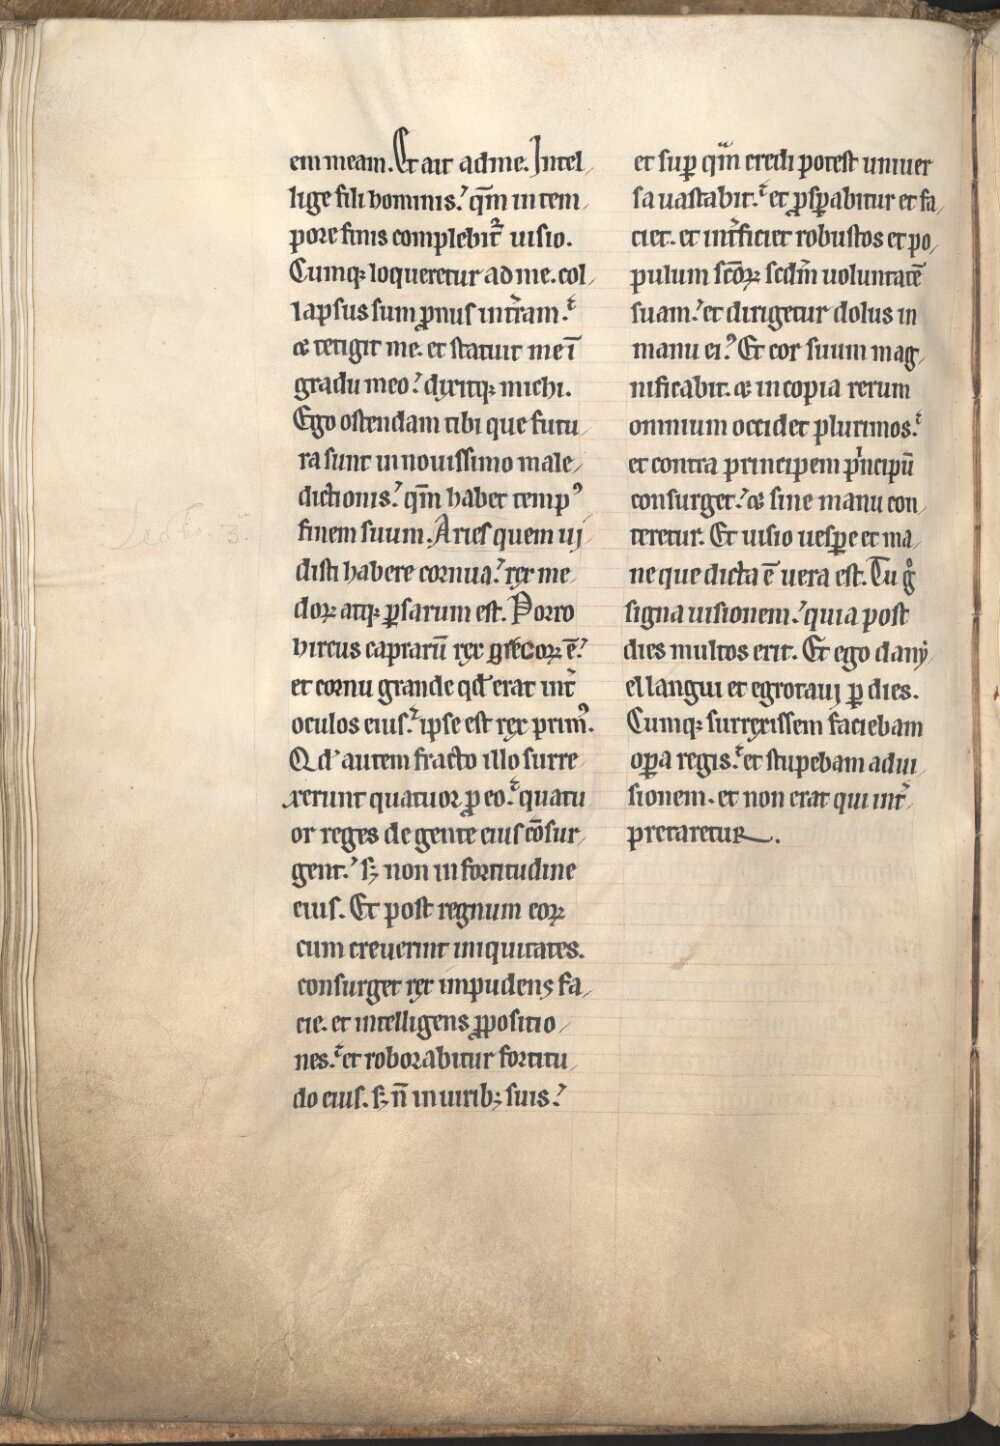 em meam. Et ait ad me. Intel
lige fili hominis? qm̄ in tem
pore finis complebit᷑ uisio.
Cumq; loqueretur ad me. col
lapsus sum p̄nus int̄ram.
& tetigit me. et statuit me ī
gradu meo? dixitq; michi.
Ego ostendam tibi que futu
ra sunt in nouissimo male
dictionis? qm̄ habet tempꝰ
finem suum. Aries quem ui
disti habere cornua? rex me
doꝝ atq; ꝑsarum est. Porro
hircus caprarū rex grecoꝝ ē?
et cornu grande qđ erat int̄
oculos eius. ipse est rex primꝰ.
Qđ autem fracto illo surre
xerunt quatuor ꝓ eo. quatu
or reges de gente eius cōsur
gent? sꝫ non in fortitudine
eius. Et post regnum eoꝝ
cum creuerint iniquitates.
consurget rex impudens fa
cie. et intelligens ꝓpositio
nes. et roborabitur fortitu
do eius. sꝫ n̄ in uirib; suis?
et suꝑ qm̄ credi potest uniuer
sa uastabit. et ꝓsꝑabitur et fa
ciet. et int̄ficiet robustos et po
pulum scōꝝ scđm uoluntatē
suam? et dirigetur dolus in
manu eiꝰ. Et cor suum mag
nificabit. & in copia rerum
omnium occidet plurimos.
et contra principem pⁱncipū
consurget? & sine manu con
teretur. Et uisio uesꝑe et ma
ne que dicta ē uera est. Tu gͦ
signa uisionem? quia post
dies multos erit. Et ego dany
el langui et egrotaui ꝑ dies.
Cumq; surrexissem faciebam
oꝑa regis. et stupebam ad ui
sionem. et non erat qui int̄
pretaretur.